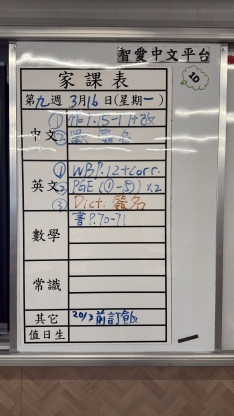 智愛中文平台
1D
家課表
第九週 3月16日(星期一)
中文
英文
① WB P.12+corr.
② PGE (①-⑤) x2
③ Dict. 簽名
數學
書 P.70-71
常識
其它
20/3 前訂飯
值日生